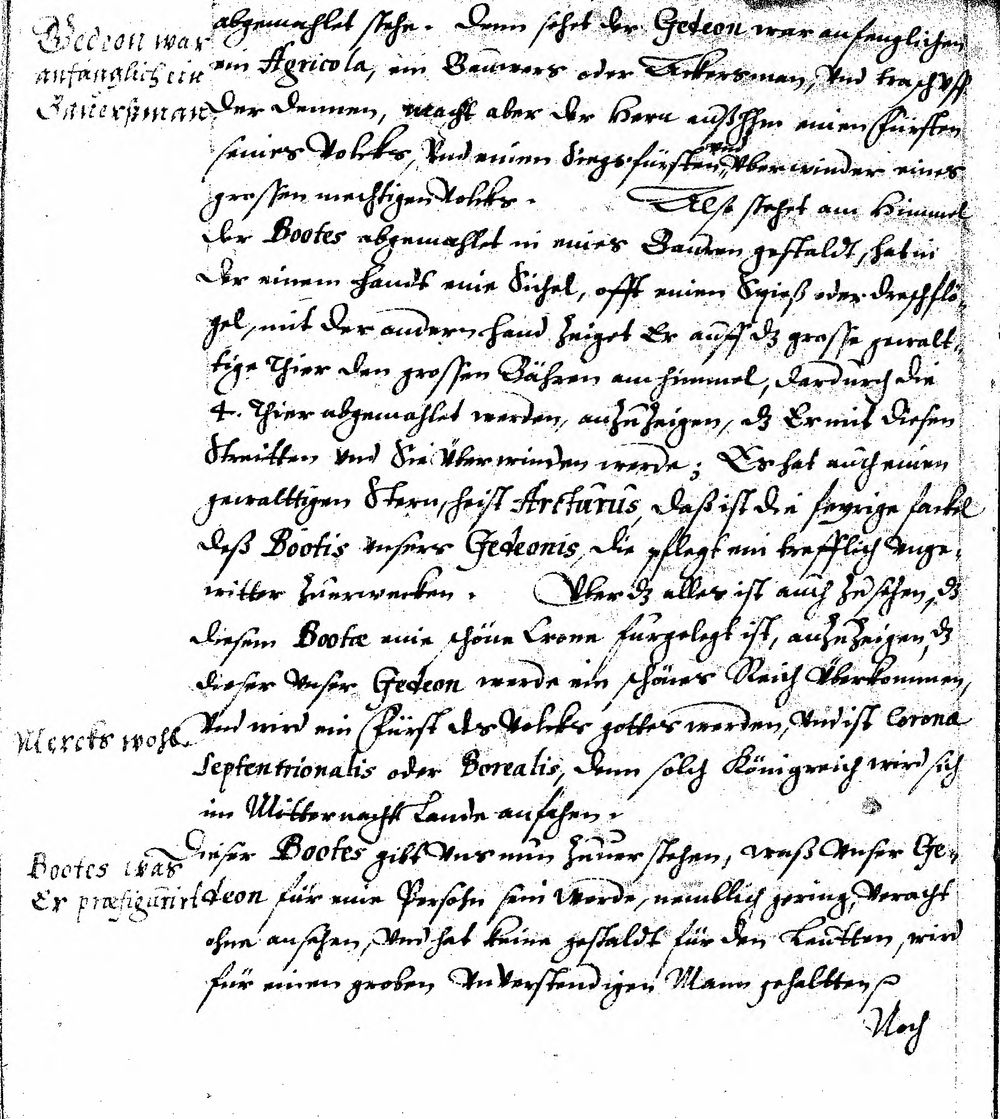 Gedeon war
anfänglich ein
Bauerßman
abgemahlet stehe. Denn sehet der Gedeon war anfenglichen
ein Agricola, ein Bauwers oder Ackersman, Vnd trasch vff
der dennen, macht aber der Herr auß Ihm einen Fürsten
seines Volcks, Vnd einen Siegsfürsten, vnd Vberwinder eines
grossen mechtigen Volcks. Also stehet am Himmel
der Bootes abgemahlet in eines Bauren gestaldt, hat in
der einem handt eine Sichel, offt einen Spieß oder dreschflö-
gel, mit der andern hand zeiget Er auff dz grosse gewalt-
tige Thier den grossen Bähren am himmel, dardurch die
4. Thier abgemahlet werden, anzuzeigen, dz Er mit diesen
Streitten vnd Sie Vberwinden werde; Es hat auch einen
gewalttigen Stern, heist Arcturus, daß ist die feyrige fackel
deß Bootis vnsers Gedeonis, die pflegt ein trefflich Vnge-
witter zuerwecken. Vber dz alles ist auch zu sehen, dz
diesem Bootæ eine schöne Crone fürgelegt ist, anzuzeigen, dz
dieser Vnser Gedeon werde ein schönes Reich Vberkommen,
Mercks wohl.
Vnd wird ein Fürst des Volcks gottes werden, Vnd ist Corona
Septentrionalis oder Borealis, denn solch Königreich wird sich
im Mitternacht Lande anfahen.
Bootes was
Er præfigurirt
Dieser Bootes gibt Vns nun zuuerstehen, waß Vnser Ge-
deon für eine Persohn sein werde, nemblich gering, Veracht
ohne ansehen, Vnd hat keine gestaldt für den Leutten, wird
für einen groben Vnverstendigen Mann gehaltten
Noch